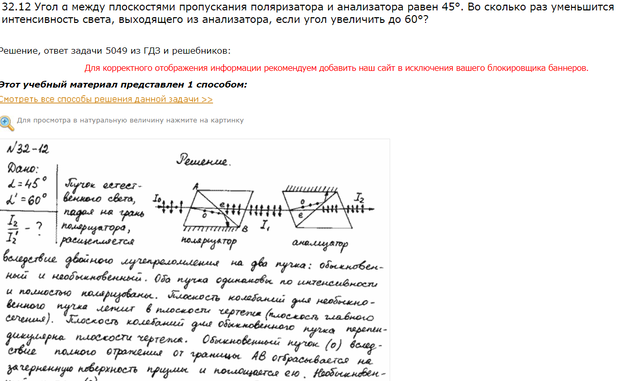 32.12 Угол α между плоскостями пропускания поляризатора и анализатора равен 45°. Во сколько раз уменьшится
интенсивность света, выходящего из анализатора, если угол увеличить до 60°?
Решение, ответ задачи 5049 из ГДЗ и решебников:
Для корректного отображения информации рекомендуем добавить наш сайт в исключения вашего блокировщика баннеров.
Этот учебный материал представлен 1 способом:
Смотреть все способы решения данной задачи >>
Для просмотра в натуральную величину нажмите на картинку
№32-12
Решение.
Дано:
α=45°
α'=60°
I₂/I₂' - ?
Пучок естест-
венного света,
падая на грань
поляризатора,
расщепляется
I₀ A e o B I₁ o e I₂
поляризатор анализатор
вследствие двойного лучепреломления на два пучка: обыкновен-
ный и необыкновенный. Оба пучка одинаковы по интенсивности
и полностью поляризованы. Плоскость колебаний для необыкно-
венного пучка лежит в плоскости чертежа (плоскость главного
сечения). Плоскость колебаний для обыкновенного пучка перпен-
дикулярна плоскости чертежа. Обыкновенный пучок (о) вслед-
ствие полного отражения от границы АВ отбрасывается на
зачерненную поверхность призмы и поглощается ею. Необыкновен-